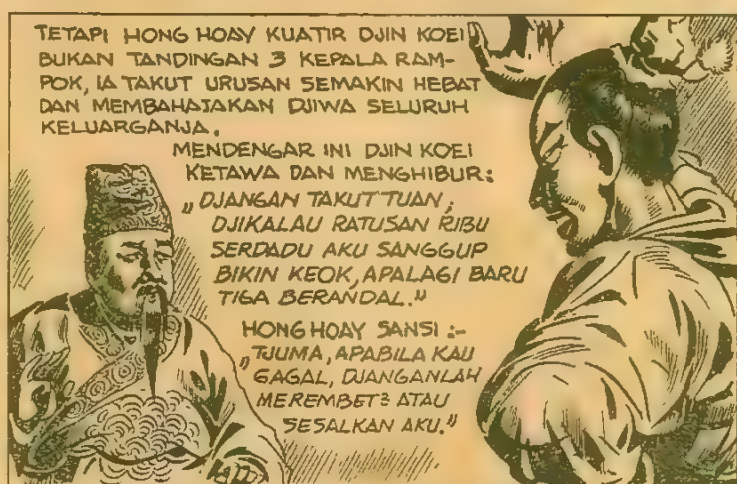 TETAPI HONG HOAY KUATIR DJIN KOEI
BUKAN TANDINGAN 3 KEPALA RAM-
POK, IA TAKUT URUSAN SEMAKIN HEBAT
DAN MEMBAHAJAKAN DJIWA SELURUH
KELUARGANJA.
MENDENGAR INI DJIN KOEI
KETAWA DAN MENGHIBUR:
„DJANGAN TAKUT TUAN,
DJIKALAU RATUSAN RIBU
SERDADU AKU SANGGUP
BIKIN KEOK, APALAGI BARU
TIGA BERANDAL."
HONG HOAY SANSI :-
„TJUMA, APABILA KAU
GAGAL, DJANGANLAH
MEREMBET2 ATAU
SESALKAN AKU."